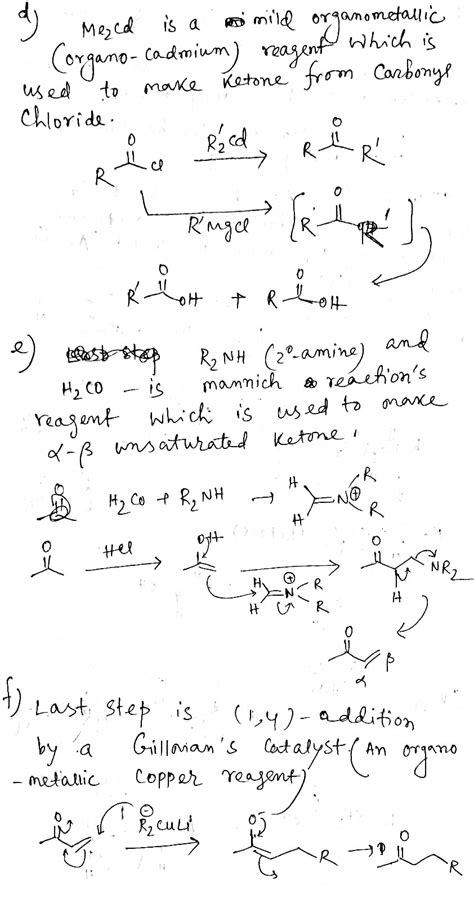 d) Me2cd is a mild organometallic
(organo-cadmium) reagent which is
used to make ketone from Carbonyl
Chloride.
O
R Cl R'2cd O R R'
R'mgcl [R O R']
O R' OH + O R OH
e) R2NH (2°-amine) and
H2CO – is mannich reaction's
reagent which is used to make
α-β unsaturated ketone.
H2CO + R2NH → H H N⊕ R R
O Hcl OH O NR2
H H N⊕ R R H
O β
α
f) Last step is (1,4)-addition
by a Gillmian's Catalyst (An organo
-metallic copper reagent)
O ⊖ R2CuLi O⊖ R → O R